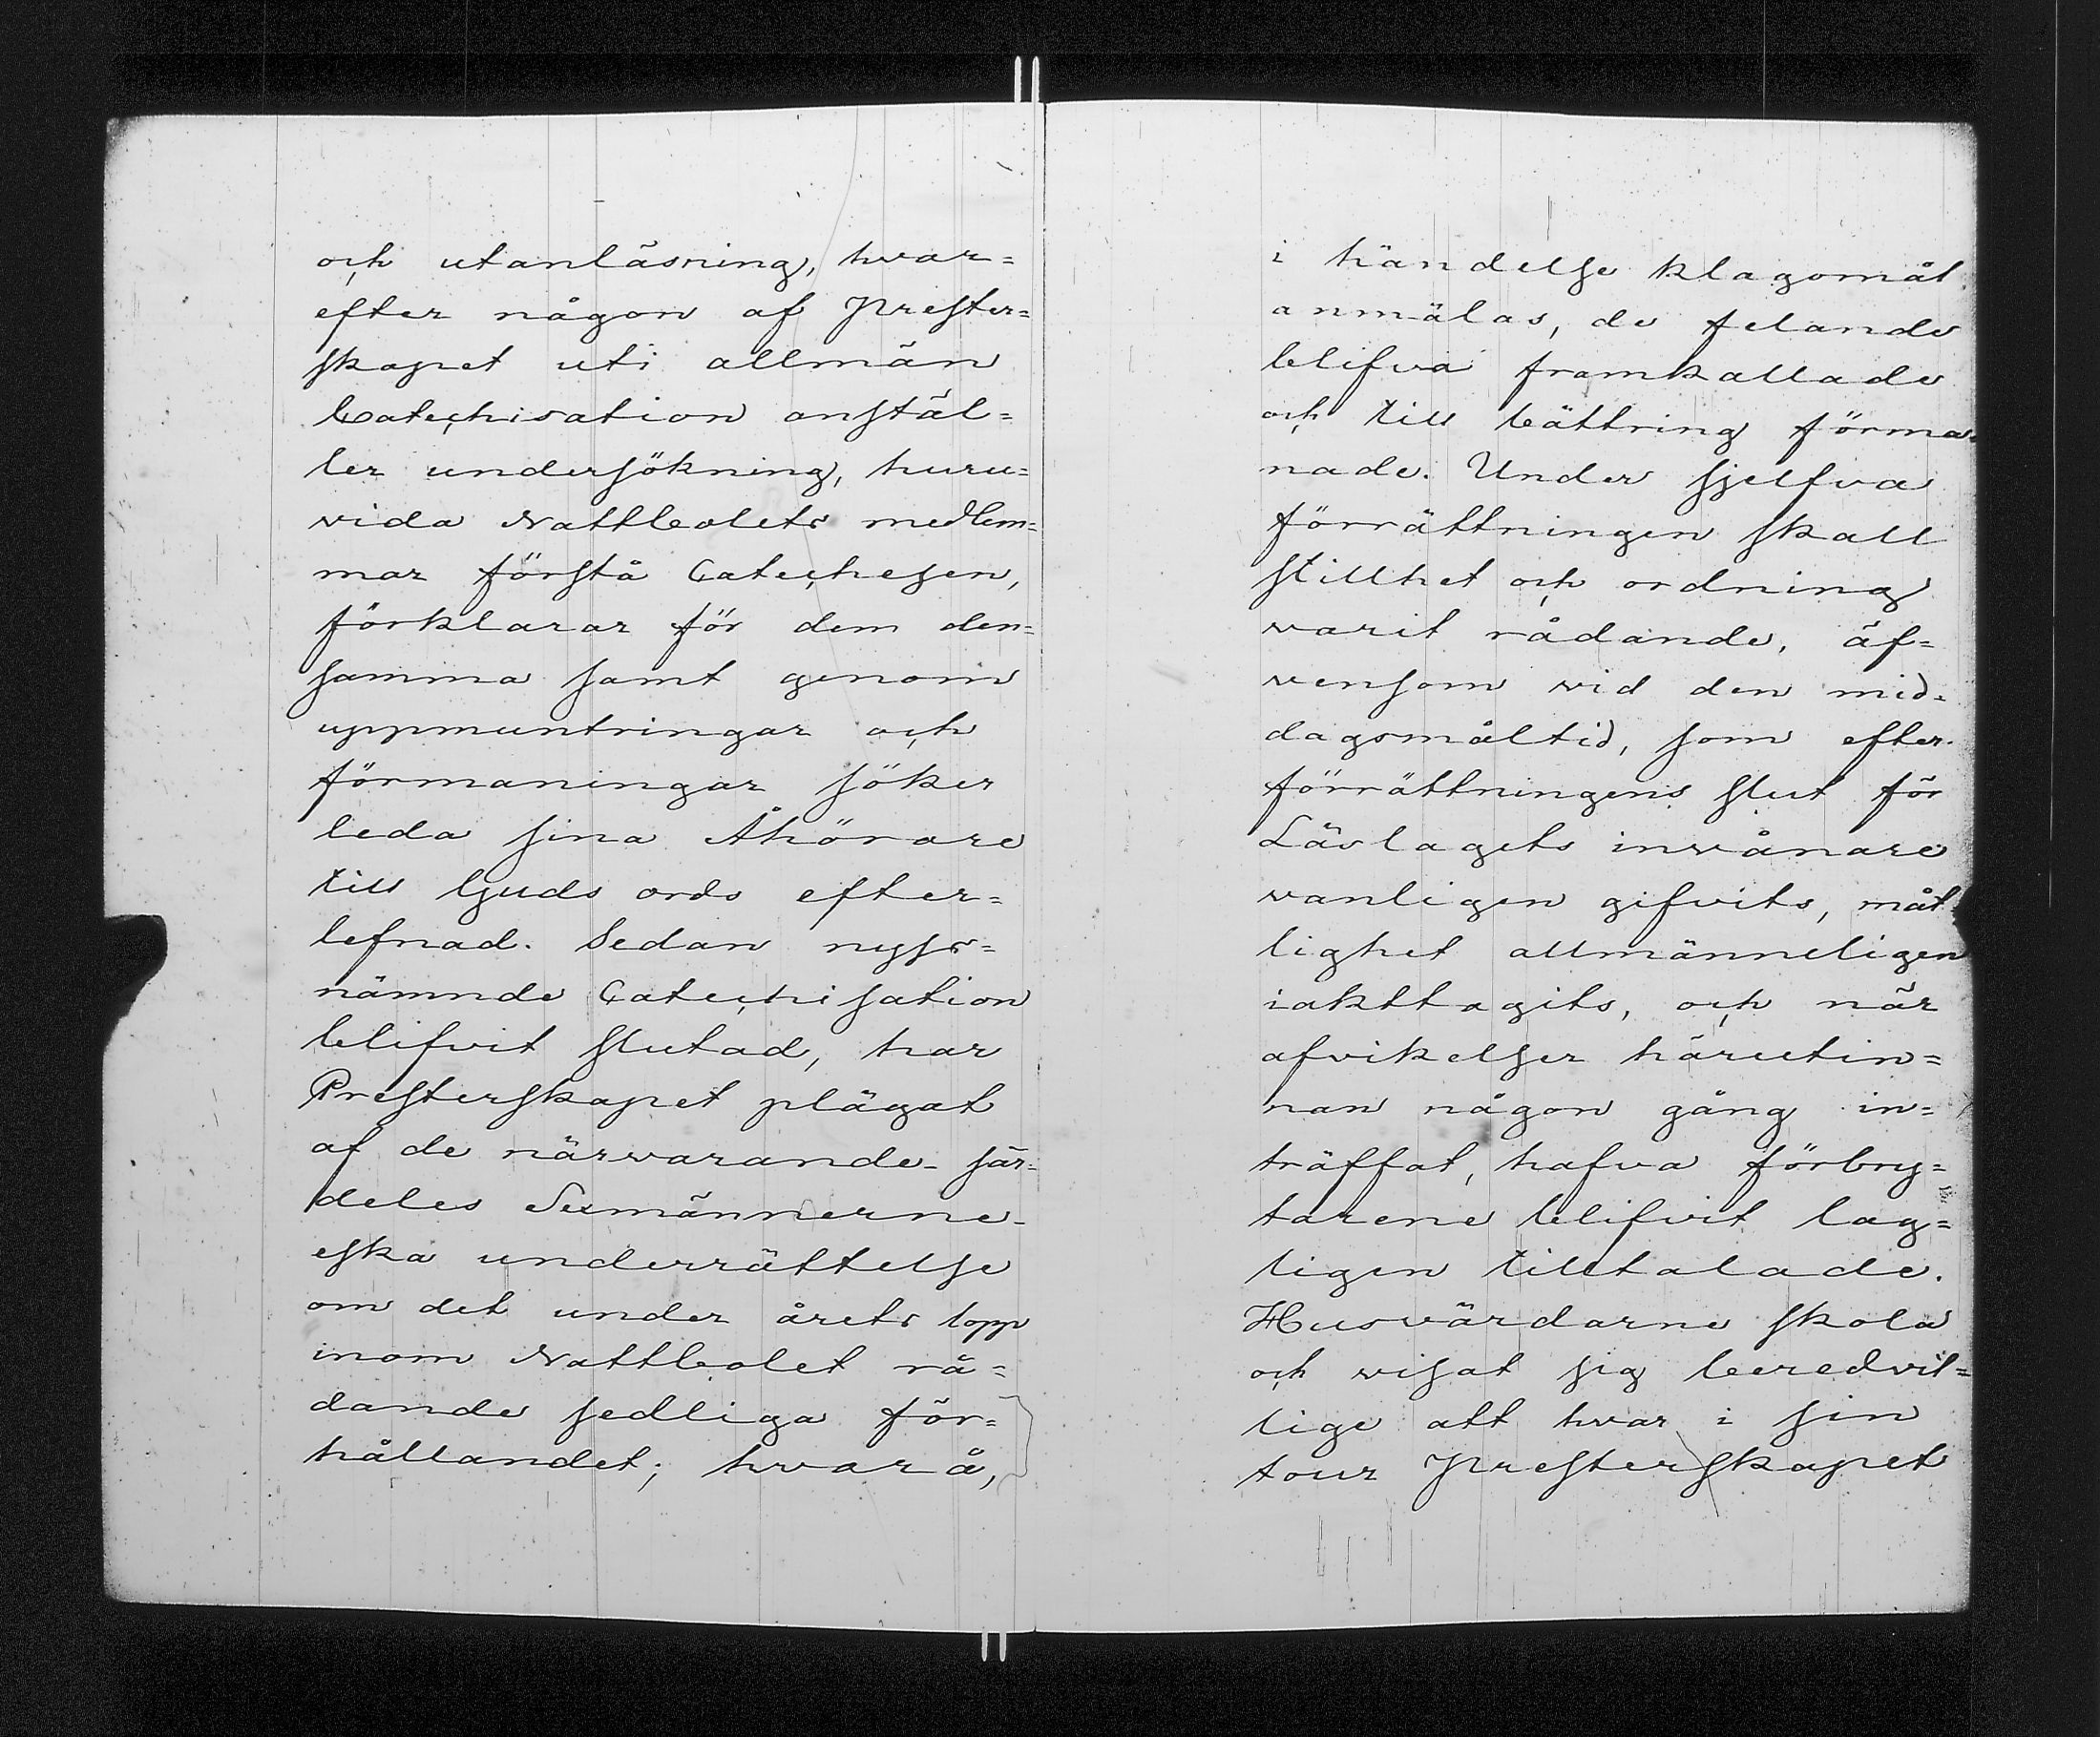 och utanläsning, hvar=
efter någon af Prester=
skapet uti allmän
Catechisation anstäl=
ler undersökning, huru=
vida Nattbolets medlem=
mar förstå Catechesen,
förklarar för dem den=
samma samt genom
uppmuntringar och
förmaningar söker
leda sina Åhörare
till Guds ords efter=
lefnad. Sedan nyss=
nämnde Catechisation
blifvit slutad, har
Presterskapet plägat
af de närvarande sär=
deles Sexmännerne
eska underrättelse
om det under årets lopp
inom Nattbolet rå=
dande sedliga för=
hållandet; hvarå,
i händelse klagomål
anmälas, de felande
blifva framkallade
och till bättring förma=
nade. Under sjelfva
förrättningen skall
stillhet och ordning
varit rådande, äf=
vensom vid den mid=
dagsmåltid, som efter
förrättningens slut för
Läslagets invånare
vanligen gifvits, måt
lighet allmänneligen
iakttagits, och när
afvikelser härutin=
nan någon gång in=
träffat, hafva förbry=
tarene blifvit lag=
ligen tilltalade.
Husvärdarne skola
och visat sig beredvil=
lige att hvar i sin
tour Presterskapet